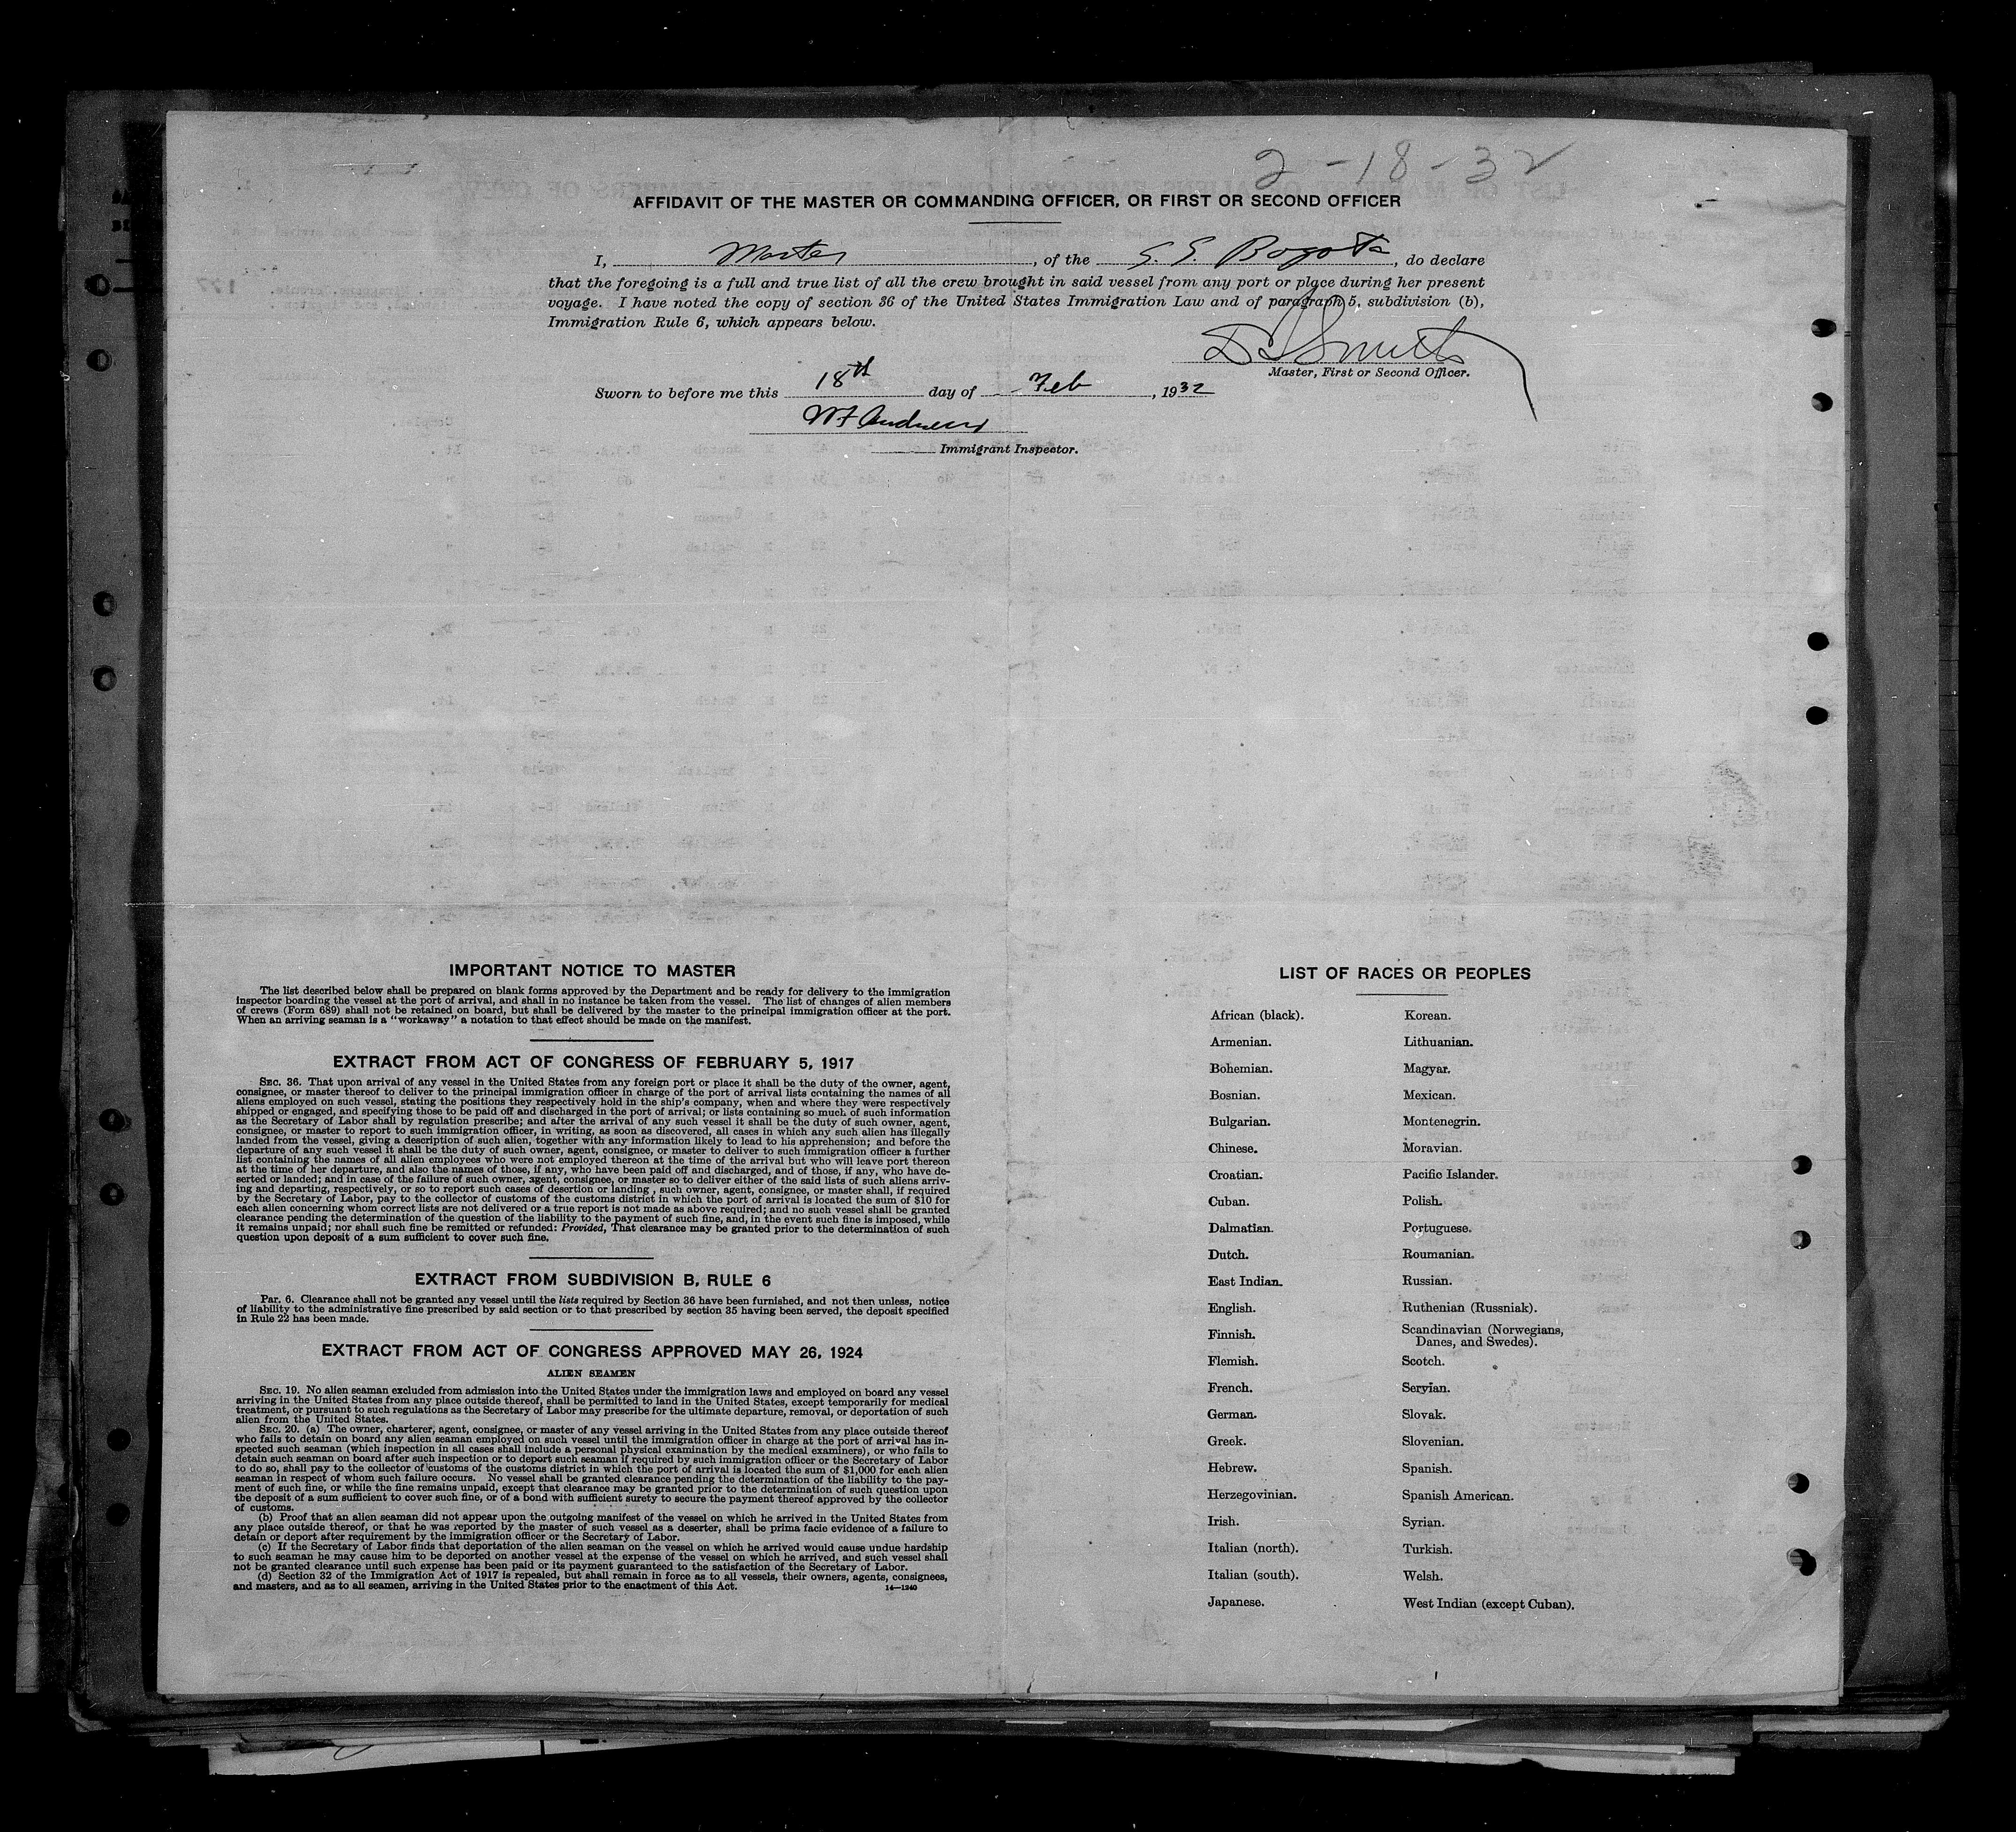 2-18-32
AFFIDAVIT OF THE MASTER OR COMMANDING OFFICER, OR FIRST OR SECOND OFFICER
I, Master, of the S. S. Bogota, do declare
that the foregoing is a full and true list of all the crew brought in said vessel from any port or place during her present
voyage. I have noted the copy of section 36 of the United States Immigration Law and of paragraph 5, subdivision (b),
Immigration Rule 6, which appears below.
Smith
Master, First or Second Officer.
Sworn to before me this 18th day of Feb, 1932
Andrews
Immigrant Inspector.
IMPORTANT NOTICE TO MASTER
The list described below shall be prepared on blank forms approved by the Department and be ready for delivery to the immigration
inspector boarding the vessel at the port of arrival, and shall in no instance be taken from the vessel. The list of changes of alien members
of crews (Form 689) shall not be retained on board, but shall be delivered by the master to the principal immigration officer at the port.
When an arriving seaman is a "workaway" a notation to that effect should be made on the manifest.
EXTRACT FROM ACT OF CONGRESS OF FEBRUARY 5, 1917
SEC. 36. That upon arrival of any vessel in the United States from any foreign port or place it shall be the duty of the owner, agent,
consignee, or master thereof to deliver to the principal immigration officer in charge of the port of arrival lists containing the names of all
aliens employed on such vessel, stating the positions they respectively hold in the ship's company, when and where they were respectively
shipped or engaged, and specifying those to be paid off and discharged in the port of arrival; or lists containing so much of such information
as the Secretary of Labor shall by regulation prescribe; and after the arrival of any such vessel it shall be the duty of such owner, agent,
consignee, or master to report to such immigration officer, in writing, as soon as discovered, all cases in which any such alien has illegally
landed from the vessel, giving a description of such alien, together with any information likely to lead to his apprehension; and before the
departure of any such vessel it shall be the duty of such owner, agent, consignee, or master to deliver to such immigration officer a further
list containing the names of all alien employees who were not employed thereon at the time of the arrival but who will leave port thereon
at the time of her departure, and also the names of those, if any, who have been paid off and discharged, and of those, if any, who have de-
serted or landed; and in case of the failure of such owner, agent, consignee, or master so to deliver either of the said lists of such aliens arriv-
ing and departing, respectively, or so to report such cases of desertion or landing , such owner, agent, consignee, or master shall, if required
by the Secretary of Labor, pay to the collector of customs of the customs district in which the port of arrival is located the sum of $10 for
each alien concerning whom correct lists are not delivered or a true report is not made as above required; and no such vessel shall be granted
clearance pending the determination of the question of the liability to the payment of such fine, and, in the event such fine is imposed, while
it remains unpaid; nor shall such fine be remitted or refunded: Provided, That clearance may be granted prior to the determination of such
question upon deposit of a sum sufficient to cover such fine.
EXTRACT FROM SUBDIVISION B, RULE 6
Par. 6. Clearance shall not be granted any vessel until the lists required by Section 36 have been furnished, and not then unless, notice
of liability to the administrative fine prescribed by said section or to that prescribed by section 35 having been served, the deposit specified
in Rule 22 has been made.
EXTRACT FROM ACT OF CONGRESS APPROVED MAY 26, 1924
ALIEN SEAMEN
SEC. 19. No alien seaman excluded from admission into the United States under the immigration laws and employed on board any vessel
arriving in the United States from any place outside thereof, shall be permitted to land in the United States, except temporarily for medical
treatment, or pursuant to such regulations as the Secretary of Labor may prescribe for the ultimate departure, removal, or deportation of such
alien from the United States.
SEC. 20. (a) The owner, charterer, agent, consignee, or master of any vessel arriving in the United States from any place outside thereof
who fails to detain on board any alien seaman employed on such vessel until the immigration officer in charge at the port of arrival has in-
spected such seaman (which inspection in all cases shall include a personal physical examination by the medical examiners), or who fails to
detain such seaman on board after such inspection or to deport such seaman if required by such immigration officer or the Secretary of Labor
to do so, shall pay to the collector of customs of the customs district in which the port of arrival is located the sum of $1,000 for each alien
seaman in respect of whom such failure occurs. No vessel shall be granted clearance pending the determination of the liability to the pay-
ment of such fine, or while the fine remains unpaid, except that clearance may be granted prior to the determination of such question upon
the deposit of a sum sufficient to cover such fine, or of a bond with sufficient surety to secure the payment thereof approved by the collector
of customs.
(b) Proof that an alien seaman did not appear upon the outgoing manifest of the vessel on which he arrived in the United States from
any place outside thereof, or that he was reported by the master of such vessel as a deserter, shall be prima facie evidence of a failure to
detain or deport after requirement by the immigration officer or the Secretary of Labor.
(c) If the Secretary of Labor finds that deportation of the alien seaman on the vessel on which he arrived would cause undue hardship
to such seaman he may cause him to be deported on another vessel at the expense of the vessel on which he arrived, and such vessel shall
not be granted clearance until such expense has been paid or its payment guaranteed to the satisfaction of the Secretary of Labor.
(d) Section 32 of the Immigration Act of 1917 is repealed, but shall remain in force as to all vessels, their owners, agents, consignees,
and masters, and as to all seamen, arriving in the United States prior to the enactment of this Act.
14—1240
LIST OF RACES OR PEOPLES
African (black).
Armenian.
Bohemian.
Bosnian.
Bulgarian.
Chinese.
Croatian.
Cuban.
Dalmatian.
Dutch.
East Indian.
English.
Finnish.
Flemish.
French.
German.
Greek.
Hebrew.
Herzegovinian.
Irish.
Italian (north).
Italian (south).
Japanese.
Korean.
Lithuanian.
Magyar.
Mexican.
Montenegrin.
Moravian.
Pacific Islander.
Polish.
Portuguese.
Roumanian.
Russian.
Ruthenian (Russniak).
Scandinavian (Norwegians,
Danes, and Swedes).
Scotch.
Servian.
Slovak.
Slovenian.
Spanish.
Spanish American.
Syrian.
Turkish.
Welsh.
West Indian (except Cuban).